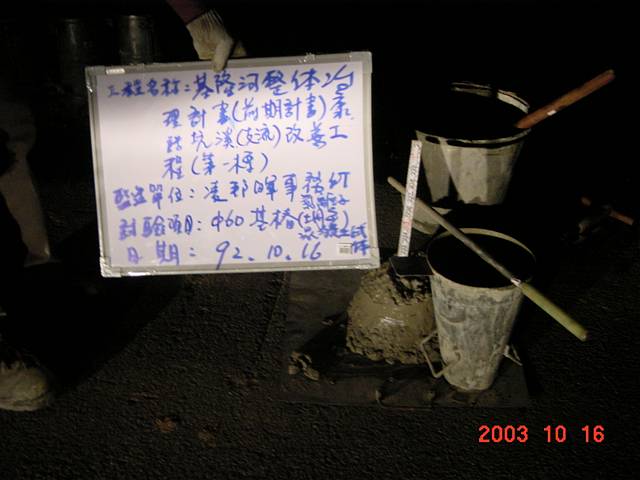 工程名称：基隆河整体治
理計畫(前期計畫)
坑溪(支流)改善工
程(第一標)
監造單位：凌邦暉事務所
試驗項目：φ60基樁
日期：92.10.16
2003 10 16